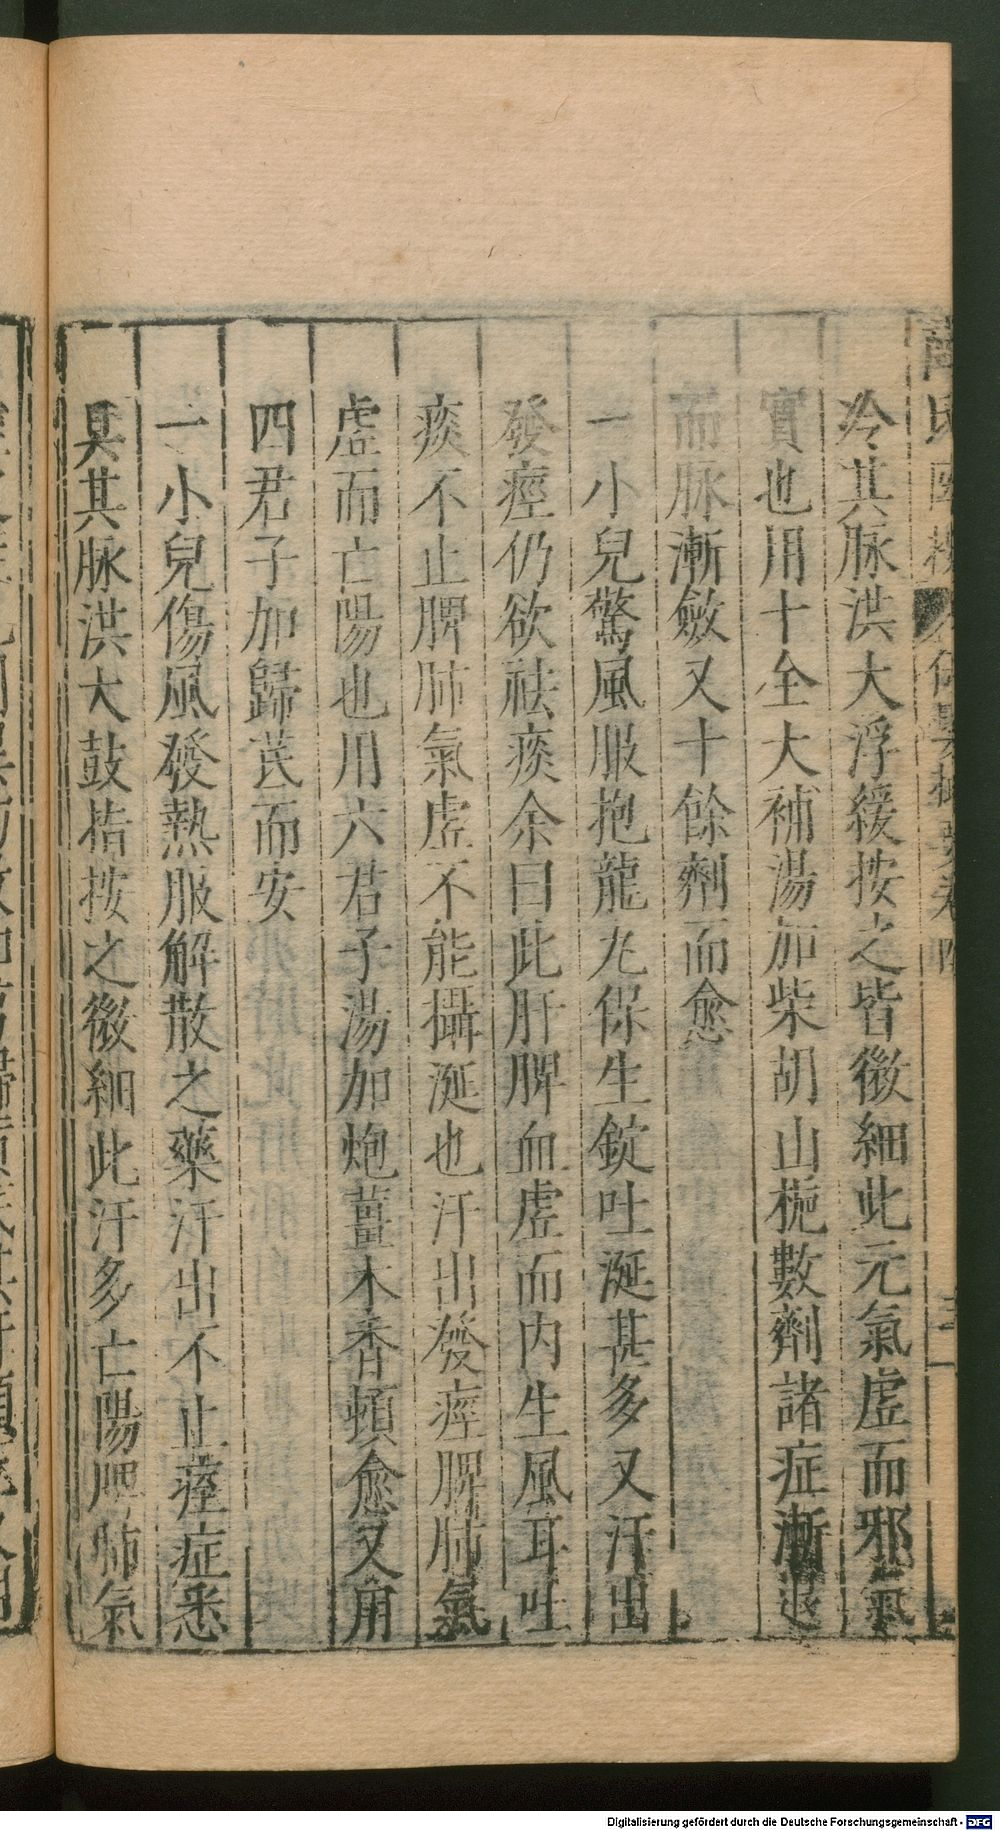 薛氏醫按 保嬰撮要卷四 三一
冷其脉洪大浮緩按之皆微細此元氣虛而邪氣
實也用十全大補湯加柴胡山梔數劑諸症漸退
而脉漸斂又十餘劑而愈
一小兒驚風服抱龍丸保生錠吐涎甚多又汗出
發痙仍欲祛痰余曰此肝脾血虛而内生風耳吐
痰不止脾肺氣虛不能攝涎也汗出發痙脾肺氣
虛而亡陽也用六君子湯加炮薑木香頓愈又用
四君子加歸芪而安
一小兒傷風發熱服解散之藥汗出不止痙症悉
具其脉洪大鼓指按之微細此汗多亡陽脾肺氣
Digitalisierung gefördert durch die Deutsche Forschungsgemeinschaft - DFG